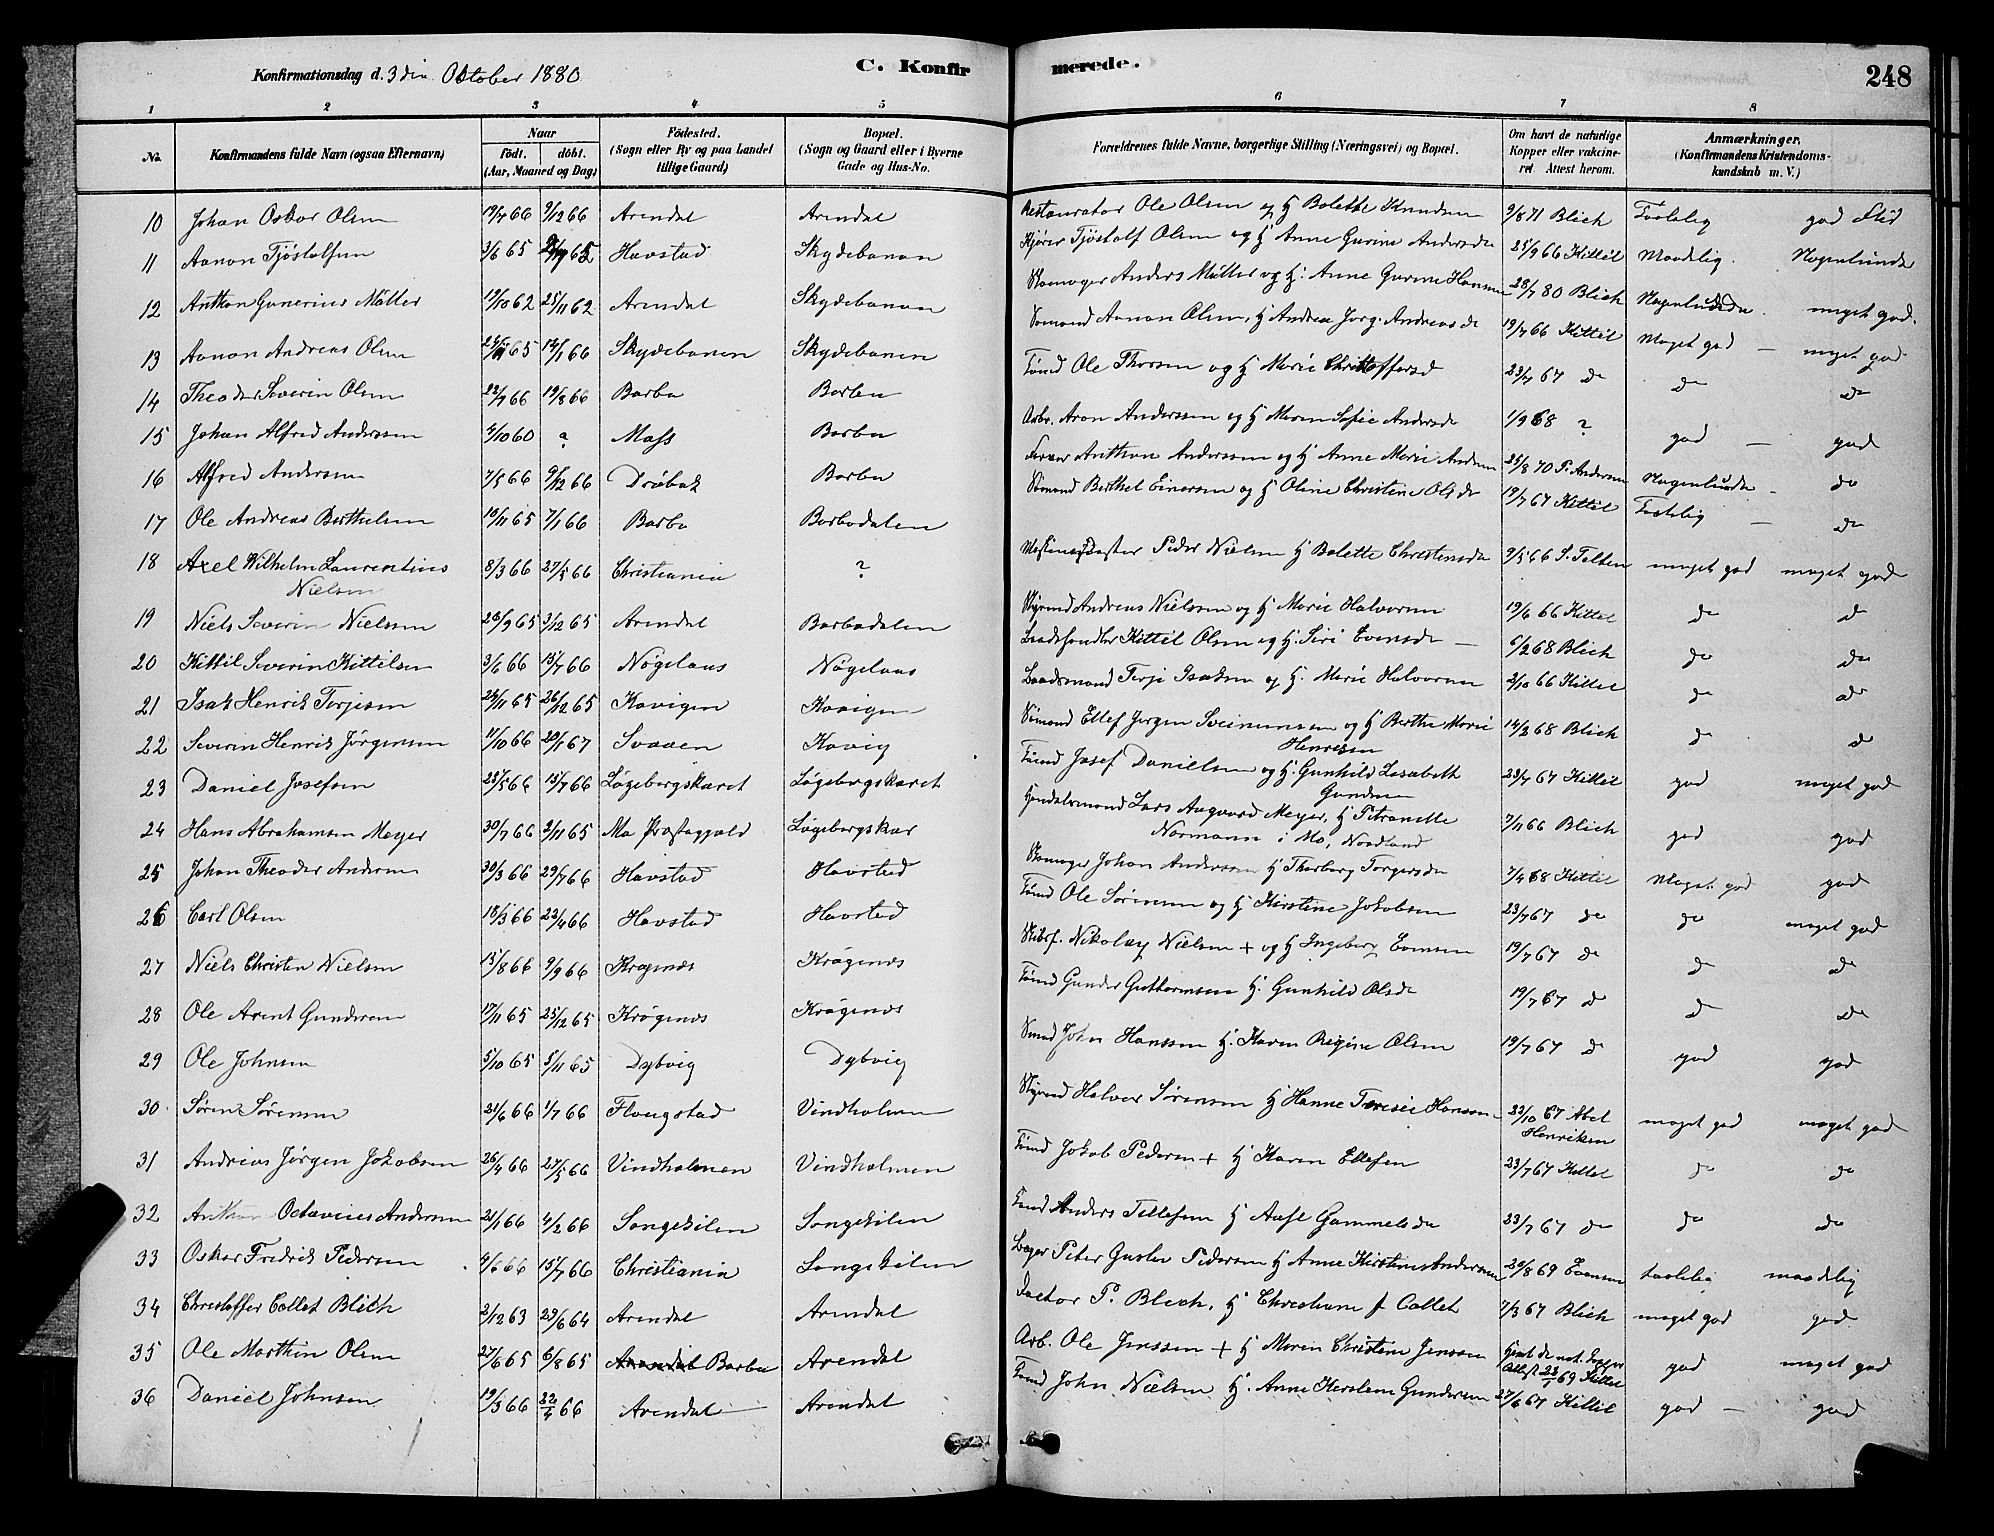 Konfirmationsdag d. 3die Oktober 1880
C. Konfirmerede.
248
1 2 3 4 5 6 7 8
No. Konfirmandens fulde Navn (ogsaa Efternavn) Naar födt. döbt. (Aar, Maaned og Dag) Födested. (Sogn eller By og paa Landet tillige Gaard) Bopæl. (Sogn og Gaard eller i Byerne Gade og Hus-No. Forældrenes fulde Navne, borgerlige Stilling (Næringsvei) og Bopæl. Om havt de naturlige Kopper eller vakcineret. Attest herom. Anmærkninger. (Konfirmandens Kristendomskundskab m. V.)
10 Johan Oskar Olsen 19/7 66 9/12 66 Arendal Arendal Restauratør Ole Olsen og H Bolette Knudsen 9/8 71 Blich Taalelig god Flid
11 Aanon Tjøstolfsen 3/6 65 Havstad Skydebanen Kjører Tjøstolf Olsen og H Anne Gurine Andersdr 25/9 66 Kittil Maadelig Nogenlunde
12 Anthon Gunerius Møller 19/10 62 25/11 62 Arendal Skydebanen Skomager Anders Møller og H. Anne Gurine Hansen 28/7 80 Blich Nogenlunde meget god.
13 Aanon Andreas Olsen 65 14/1 66 Skydebanen Skydebanen Sømand Aanon Olsen, H Andrea Jørg. Andreasdr 19/7 66 Kittil Meget god — meget god
14 Theodor Severin Olsen 22/7 66 19/8 66 Barbo Barbu Tømd Ole Thorsen og H Marie Christoffersd 23/7 67 do do do
15 Johan Alfred Andersen 4/10 60 ? Moss Barbu Arb. Aron Anderssen og H Maren Sofie Andersdr 1/9 68 ? god — god
16 Alfred Andersen 7/5 66 9/12 66 Drøbak Barbu Anthon Anderssen og H Anne Marie Andersen 25/8 70 P. Andersen Nogenlunde do
17 Ole Andreas Berthelsen 10/11 65 7/1 66 Barbo Barbodalen Sømand Berthel Einersen og H Oline Christine Olsdr 19/7 67 Kittil Taalelig — do
18 Axel Wilhelm Laurentius Nielsen 8/3 66 27/5 66 Christiania ? Peder Nielsen H Bolette Christensdr 9/5 66 S. Telten meget god meget god
19 Niels Severin Nielsen 26/9 65 3/12 65 Arendal Barbodalen Styrmd Andreas Nielsen og H Marie Halvorsen 19/6 66 Kittil do do
20 Kittil Severin Kittilsen 3/6 66 15/7 66 Nøgelaas Nøgelaas Kittil Olsen og H. Siri Evensdr — 6/2 68 Blich do do
21 Isak Henrik Terjesen 24/11 65 26/12 65 Kovigen Kovigen Baadsmand Terje Isaksen og H. Marie Halvorsen 2/10 66 Kittil do do
22 Severin Henrik Jørgensen 11/10 66 20/1 67 Svaaen Kovig Sømand Ellef Jørgen Sveinunsen og H Berthe Marie Henriksen 14/3 68 Blich do do
23 Daniel Josefsen 23/5 66 15/7 66 Løgebergskaret Løgebergskaret Tømd Josef Danielsen og H. Gunhild Lisabeth Gundersen 23/7 67 Kittil god meget god
24 Hans Abrahamsen Meyer 30/7 66 2/11 65 Mo Præstegjeld Løgebergskar Handelsmand Lars Angvard Meyer, H Petronelle Normann i Mo, Nordland 7/11 66 Blich god god
25 Johan Theodor Andersen 30/3 66 29/7 66 Havstad Havstad Skomager Johan Anderssen H Thorborg Torgersdr 7/4 68 Kittil Meget god god
26 Carl Olsen 18/3 66 22/4 66 Havstad Havstad Tømd Ole Sørensen og H Kirstine Jakobsen 23/7 67 do do meget god
27 Niels Christen Nielsen 15/8 66 9/9 66 Krøgenes Krøgenes Skibsf. Nikolay Nielsen + og H Ingeborg Evensen 19/7 67 do do do
28 Ole Arent Gundersen 17/11 65 25/12 65 Krøgenes Krøgenes Tømd Gunder Guttormsen H. Gunhild Olsdr 19/7 67 do do do
29 Ole Johnsen 5/10 65 5/11 65 Dybvig Dybvig Smed John Hanssen H. Karen Regine Olsen 19/7 67 do god god
30 Søren Sørensen 21/6 66 1/7 66 Flougstad Vindholmen Styrmd Halvor Sørensen H Hanne Teresie Hansen 22/10 67 Abel Henriksen meget god meget god
31 Andreas Jørgen Jakobsen 26/4 66 27/5 66 Vindholmen Vindholmen Tømd Jakob Pedersen + H Karen Ellefsen 23/7 67 Kittel do do
32 Anthon Octavius Andersen 21/1 66 4/2 66 Songekilen Songekilen Tømd Anders Tellefsen H Aasl Gammelsdr 23/7 67 do do do
33 Oskar Fredrik Pedersen 4/6 66 15/7 66 Christiania Songekilen Bager Peter Gustav Pedersen H Anne Kirstine Andersen 20/8 69 Evensen taalelig maadelig
34 Christoffer Collet Blich 2/12 63 29/6 64 Arendal Arendal Doctor P. Blich, H Christiane f Collet 7/3 67 Blich meget god god
35 Ole Marthin Olsen 27/6 65 6/8 65 Arendal Barbu Arendal Arb. Ole Jenssen + H Maren Christine Jenssen Havt de nat. Kopper Attest 69 Kittel god meget god
36 Daniel Johnsen 19/3 66 22/4 66 Arendal Arendal Tømd John Nielsen H. Anne Kirstine Gundersen 27/6 67 Kittil god — god